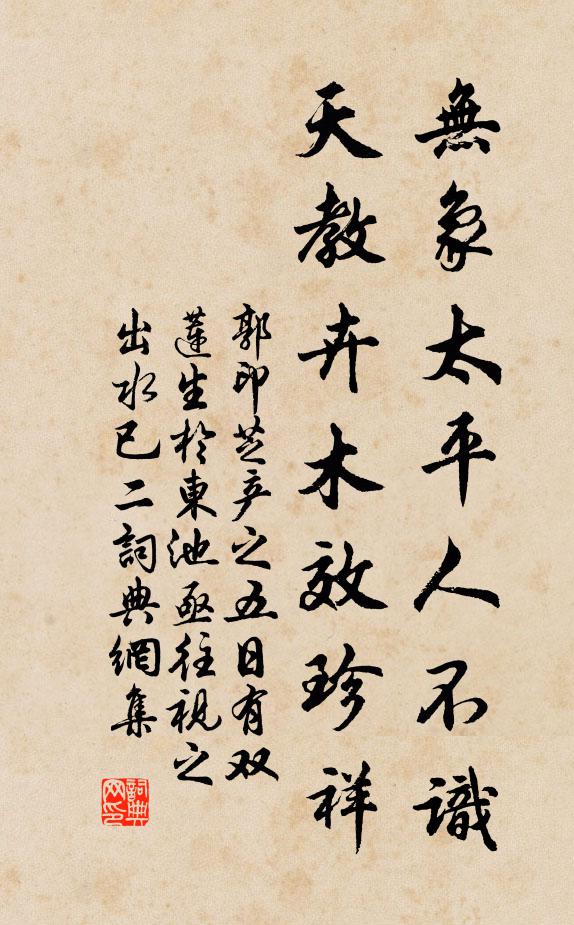 無象太平人不識
天教卉木效珍祥
郭印芝产之五日有双
蓮生於東池亟往視之
出水已二詞典網集
詞典网印